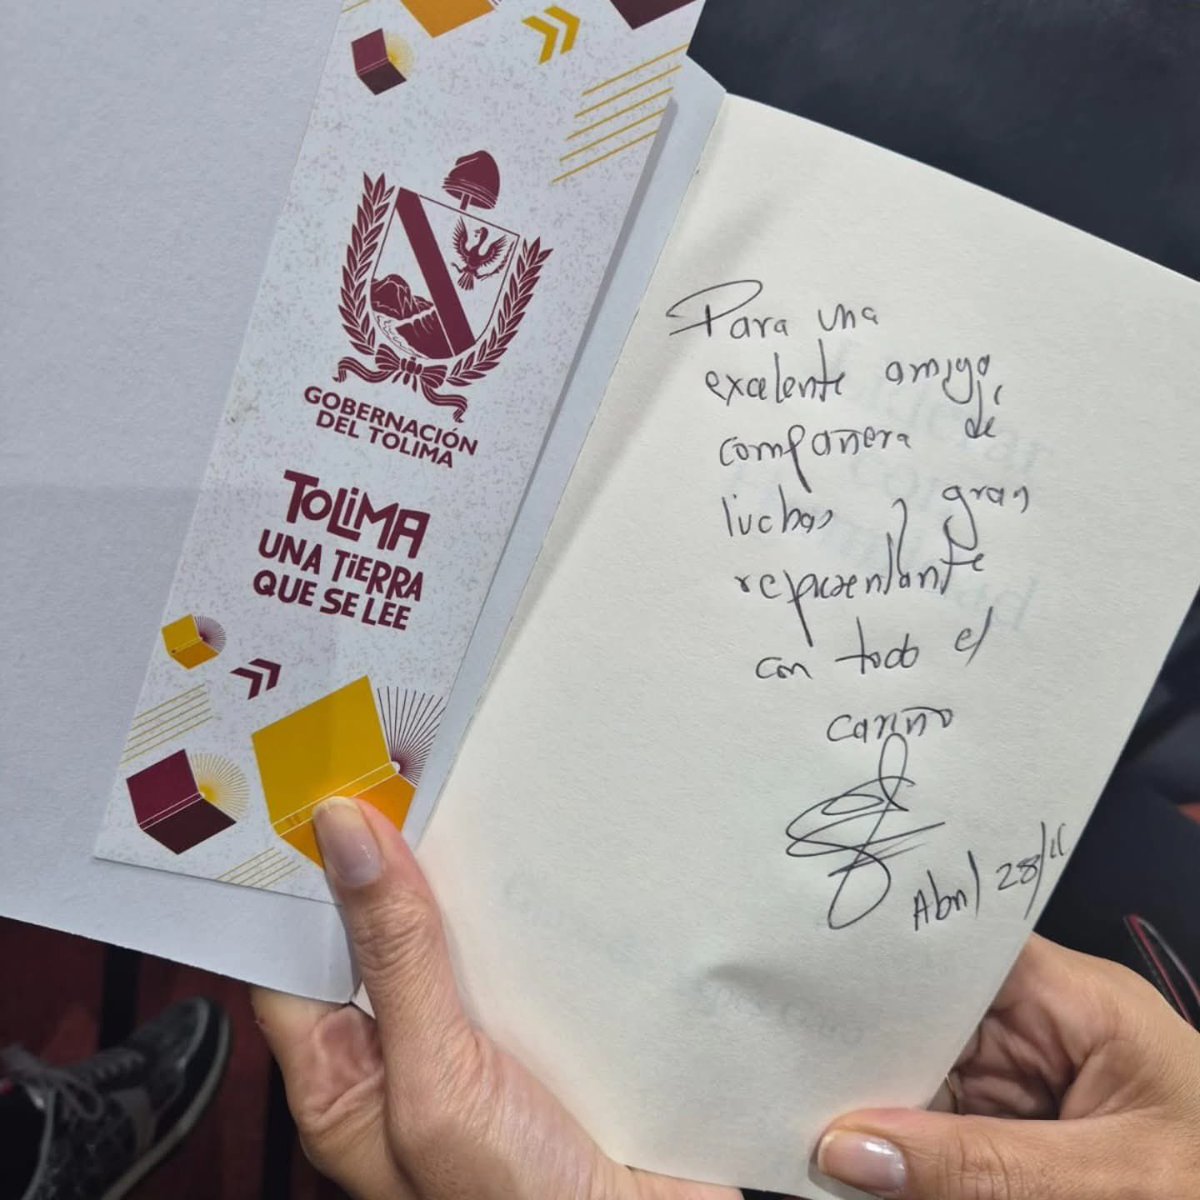 GOBERNACIÓN
DEL TOLIMA
TOLIMA
UNA TIERRA
QUE SE LEE
Para una
excelente amiga,
compañera de
luchas y gran
representante
con todo el
cariño
Abril 28/